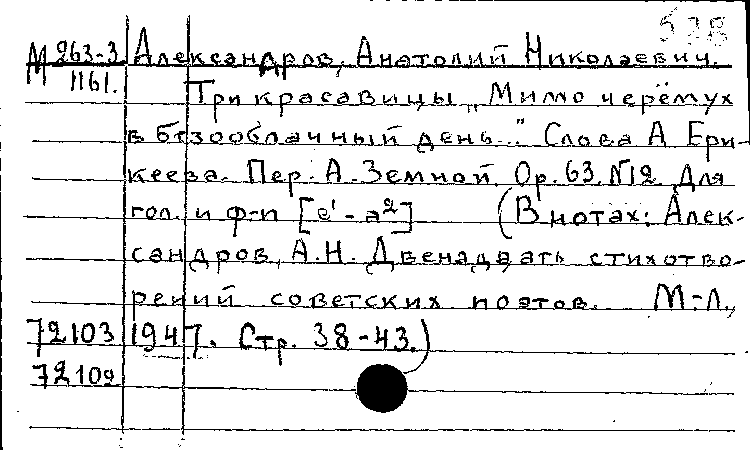 М 263-3 Александров, Анатолий Николаевич.
1161.
Три красавицы „Мимо черёмух
в безоблачный день..." Слова А Ери-
кеева. Пер. А. Земной. Ор. 63. №12. Для
гол. и ф-п [e¹ - a²] (В нотах: Алек-
сандров, А.Н. Двенадцать стихотво-
рений советских поэтов. М-Л.,
72103 1947. Стр. 38-43.)
72109